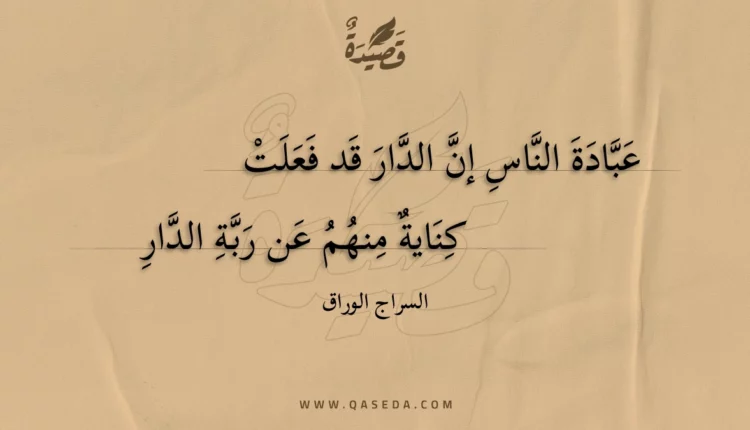 قَصِيْدَةٌ
عَبَّادَةَ النَّاسِ إنَّ الدَّارَ قَد فَعَلَتْ
كِنَايةٌ مِنهُمُ عَن رَبَّةِ الدَّارِ
السراج الوراق
WWW.QASEDA.COM